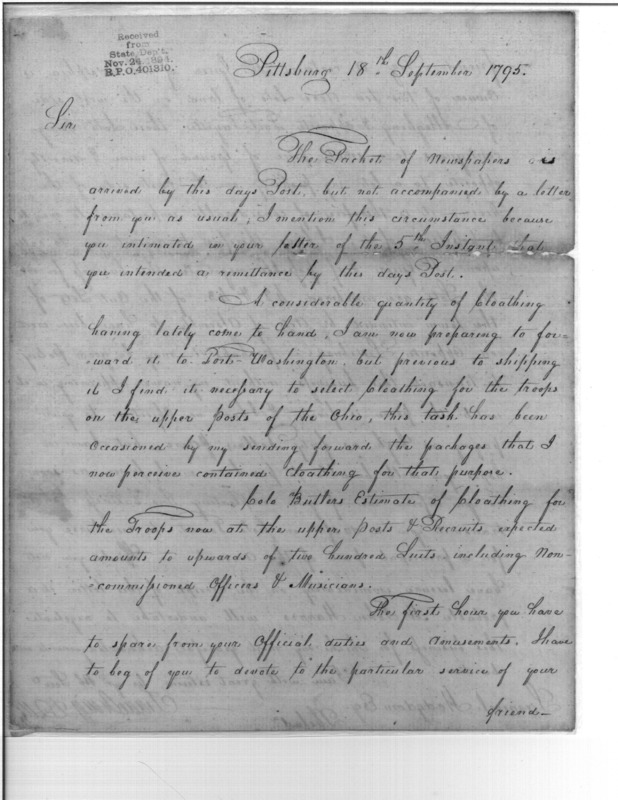 Received
from
State, Dep't.
Nov. 24 1894.
R.P.O. 401310.
Pittsburg 18th September 1795.
Sir
The Packet of Newspapers is
arrived by this days Post, but not accompanied by a letter
from you as usual, I mention this circumstance because
you intimated in your letter of the 5th Instant that
you intended a remittance by this days Post.
A considerable quantity of Cloathing
having lately come to hand, I am now preparing to for-
=ward it to Fort Washington, but previous to shipping
it I find it necessary to select Cloathing for the troops
on the upper posts of the Ohio, this task has been
Occasioned by my sending forward the packages that I
now perceive contained Cloathing for that purpose.
Colo Butlers Estimate of Cloathing for
the Troops now at the upper posts & Recruits expected
amounts to upwards of two hundred Suits including Non-
=commissioned Officers & Musicians.
The first hour you have
to spare from your Official duties and amusements, I have
to beg of you to devote to the particular service of your
friend—